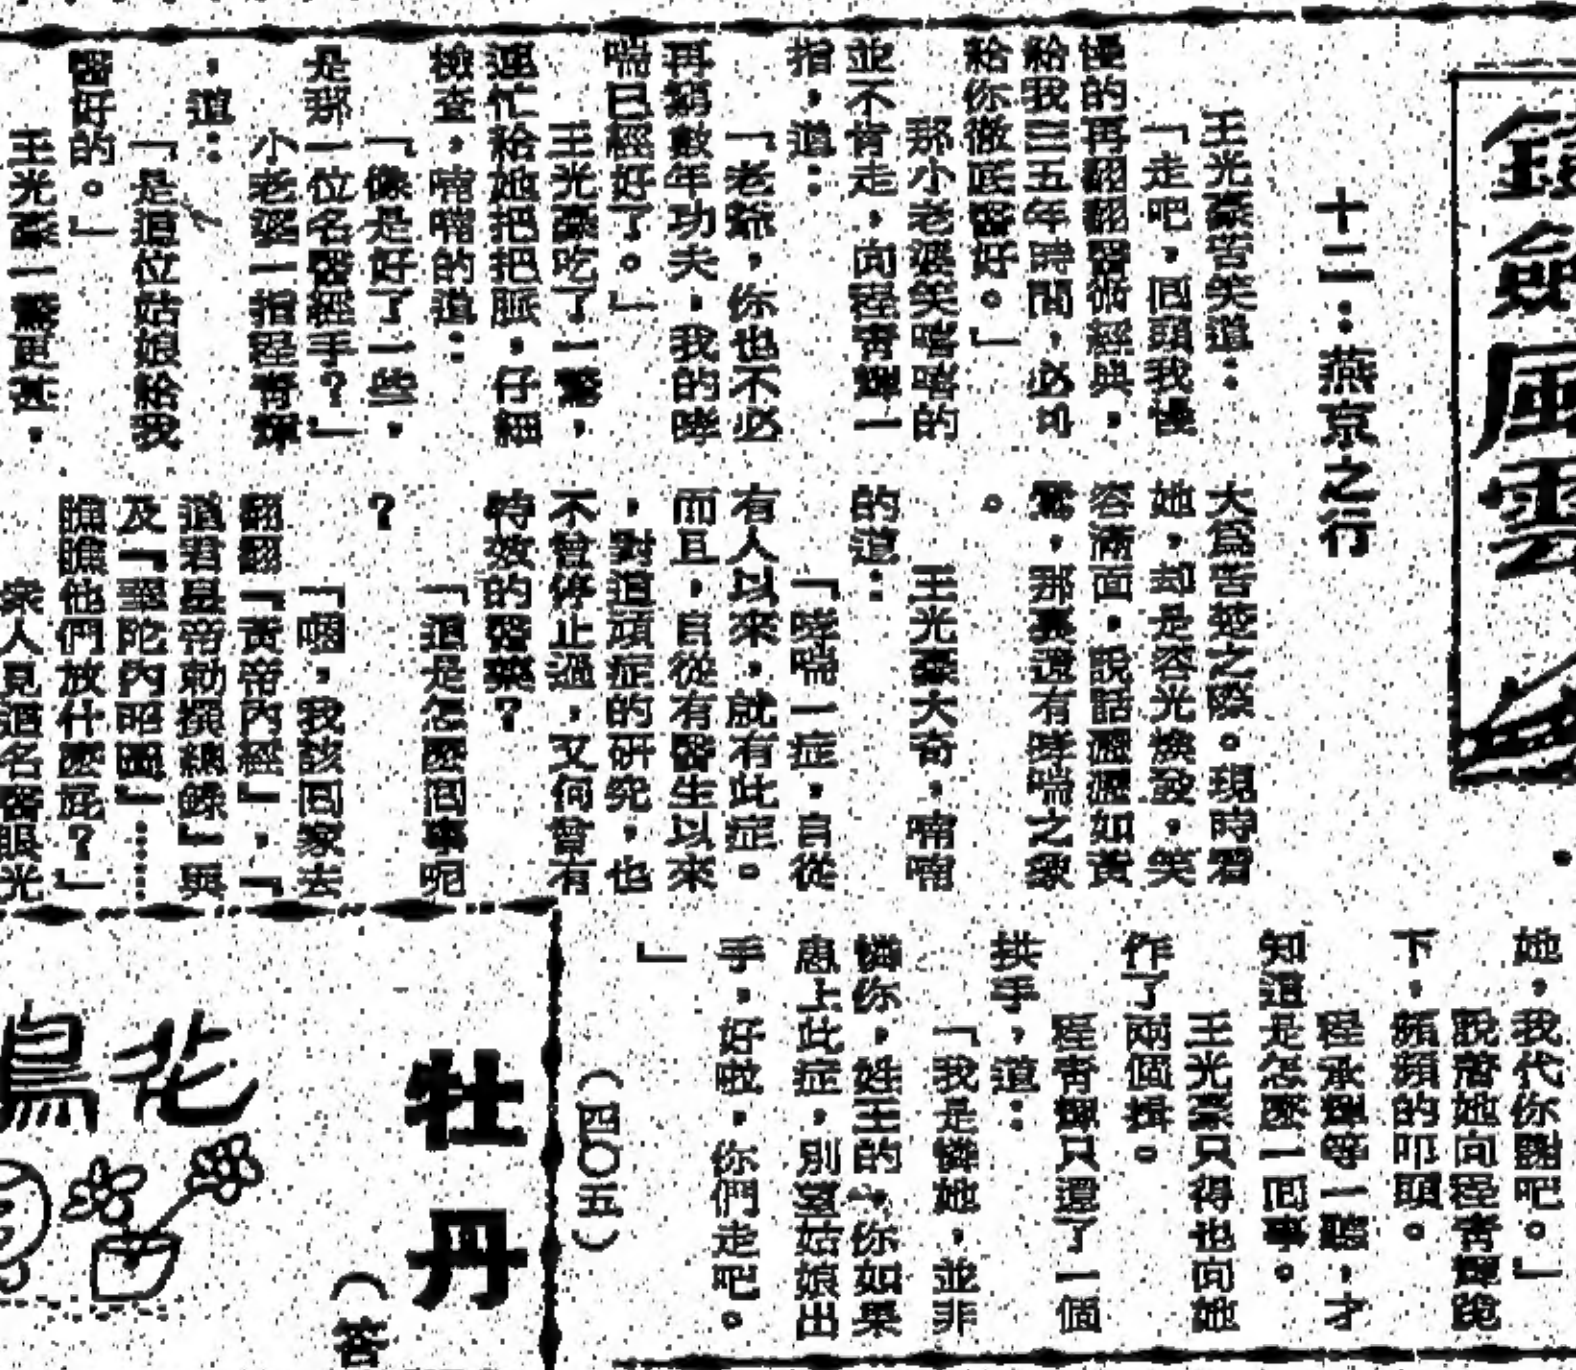 風雲
十二：燕京之行
王光豪苦笑道：
「走吧，回頭我慢
慢的再翻翻醫術經典，
給我三五年時間，必可
給你徹底醫好。」
那小老婆笑嘻嘻的
並不肯走，向程青輝一
指，道：
「老爺，你也不必
再窮數年功夫，我的哮
喘已經好了。」
王光豪吃了一驚，
連忙給她把把脈，仔細
檢查，喃喃的道：
「像是好了一些，
是那一位名醫經手？」
小老婆一指程青輝
，道：
「是這位姑娘給我
醫好的。」
王光豪一驚更甚，
大爲苦楚之際。現時看
她，却是容光煥發，笑
容滿面，說話瀝瀝如黃
鶯，那裏還有哮喘之象
。
王光豪大奇，喃喃
的道：
「哮喘一症，自從
有人以來，就有此症。
而且，自從有醫生以來
，對這項症的研究，也
不曾停止過，又何曾有
特效的醫藥？
「這是怎麼回事呢
？
「嗯，我該回家去
翻翻『黃帝內經』，『
道君皇帝勅撰總錄』與
及『華陀內昭圖』……
瞧瞧他們放什麼屁？」
衆人見這名醫眼光
她，我代你謝吧。」
說着她向程青輝跪
下，頻頻的叩頭。
程承輝等一聽，才
知道是怎麼一回事。
王光豪只得也向她
作了兩個揖。
程青輝只還了一個
拱手，道：
「我是憐她，並非
憐你，姓王的，你如果
患上此症，別望姑娘出
手，好啦，你們走吧。
」
（四〇五）
牡丹
（答
花鳥